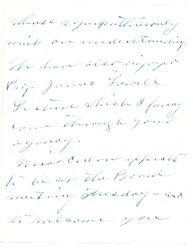 whose sympathies only
wait on understanding
We have also enjoyed
Prof. James Powell
Lecture which I fancy
come through your
agency.
Miss Cullom expects
to be at the Board
meeting Tuesday - and
to welcome you